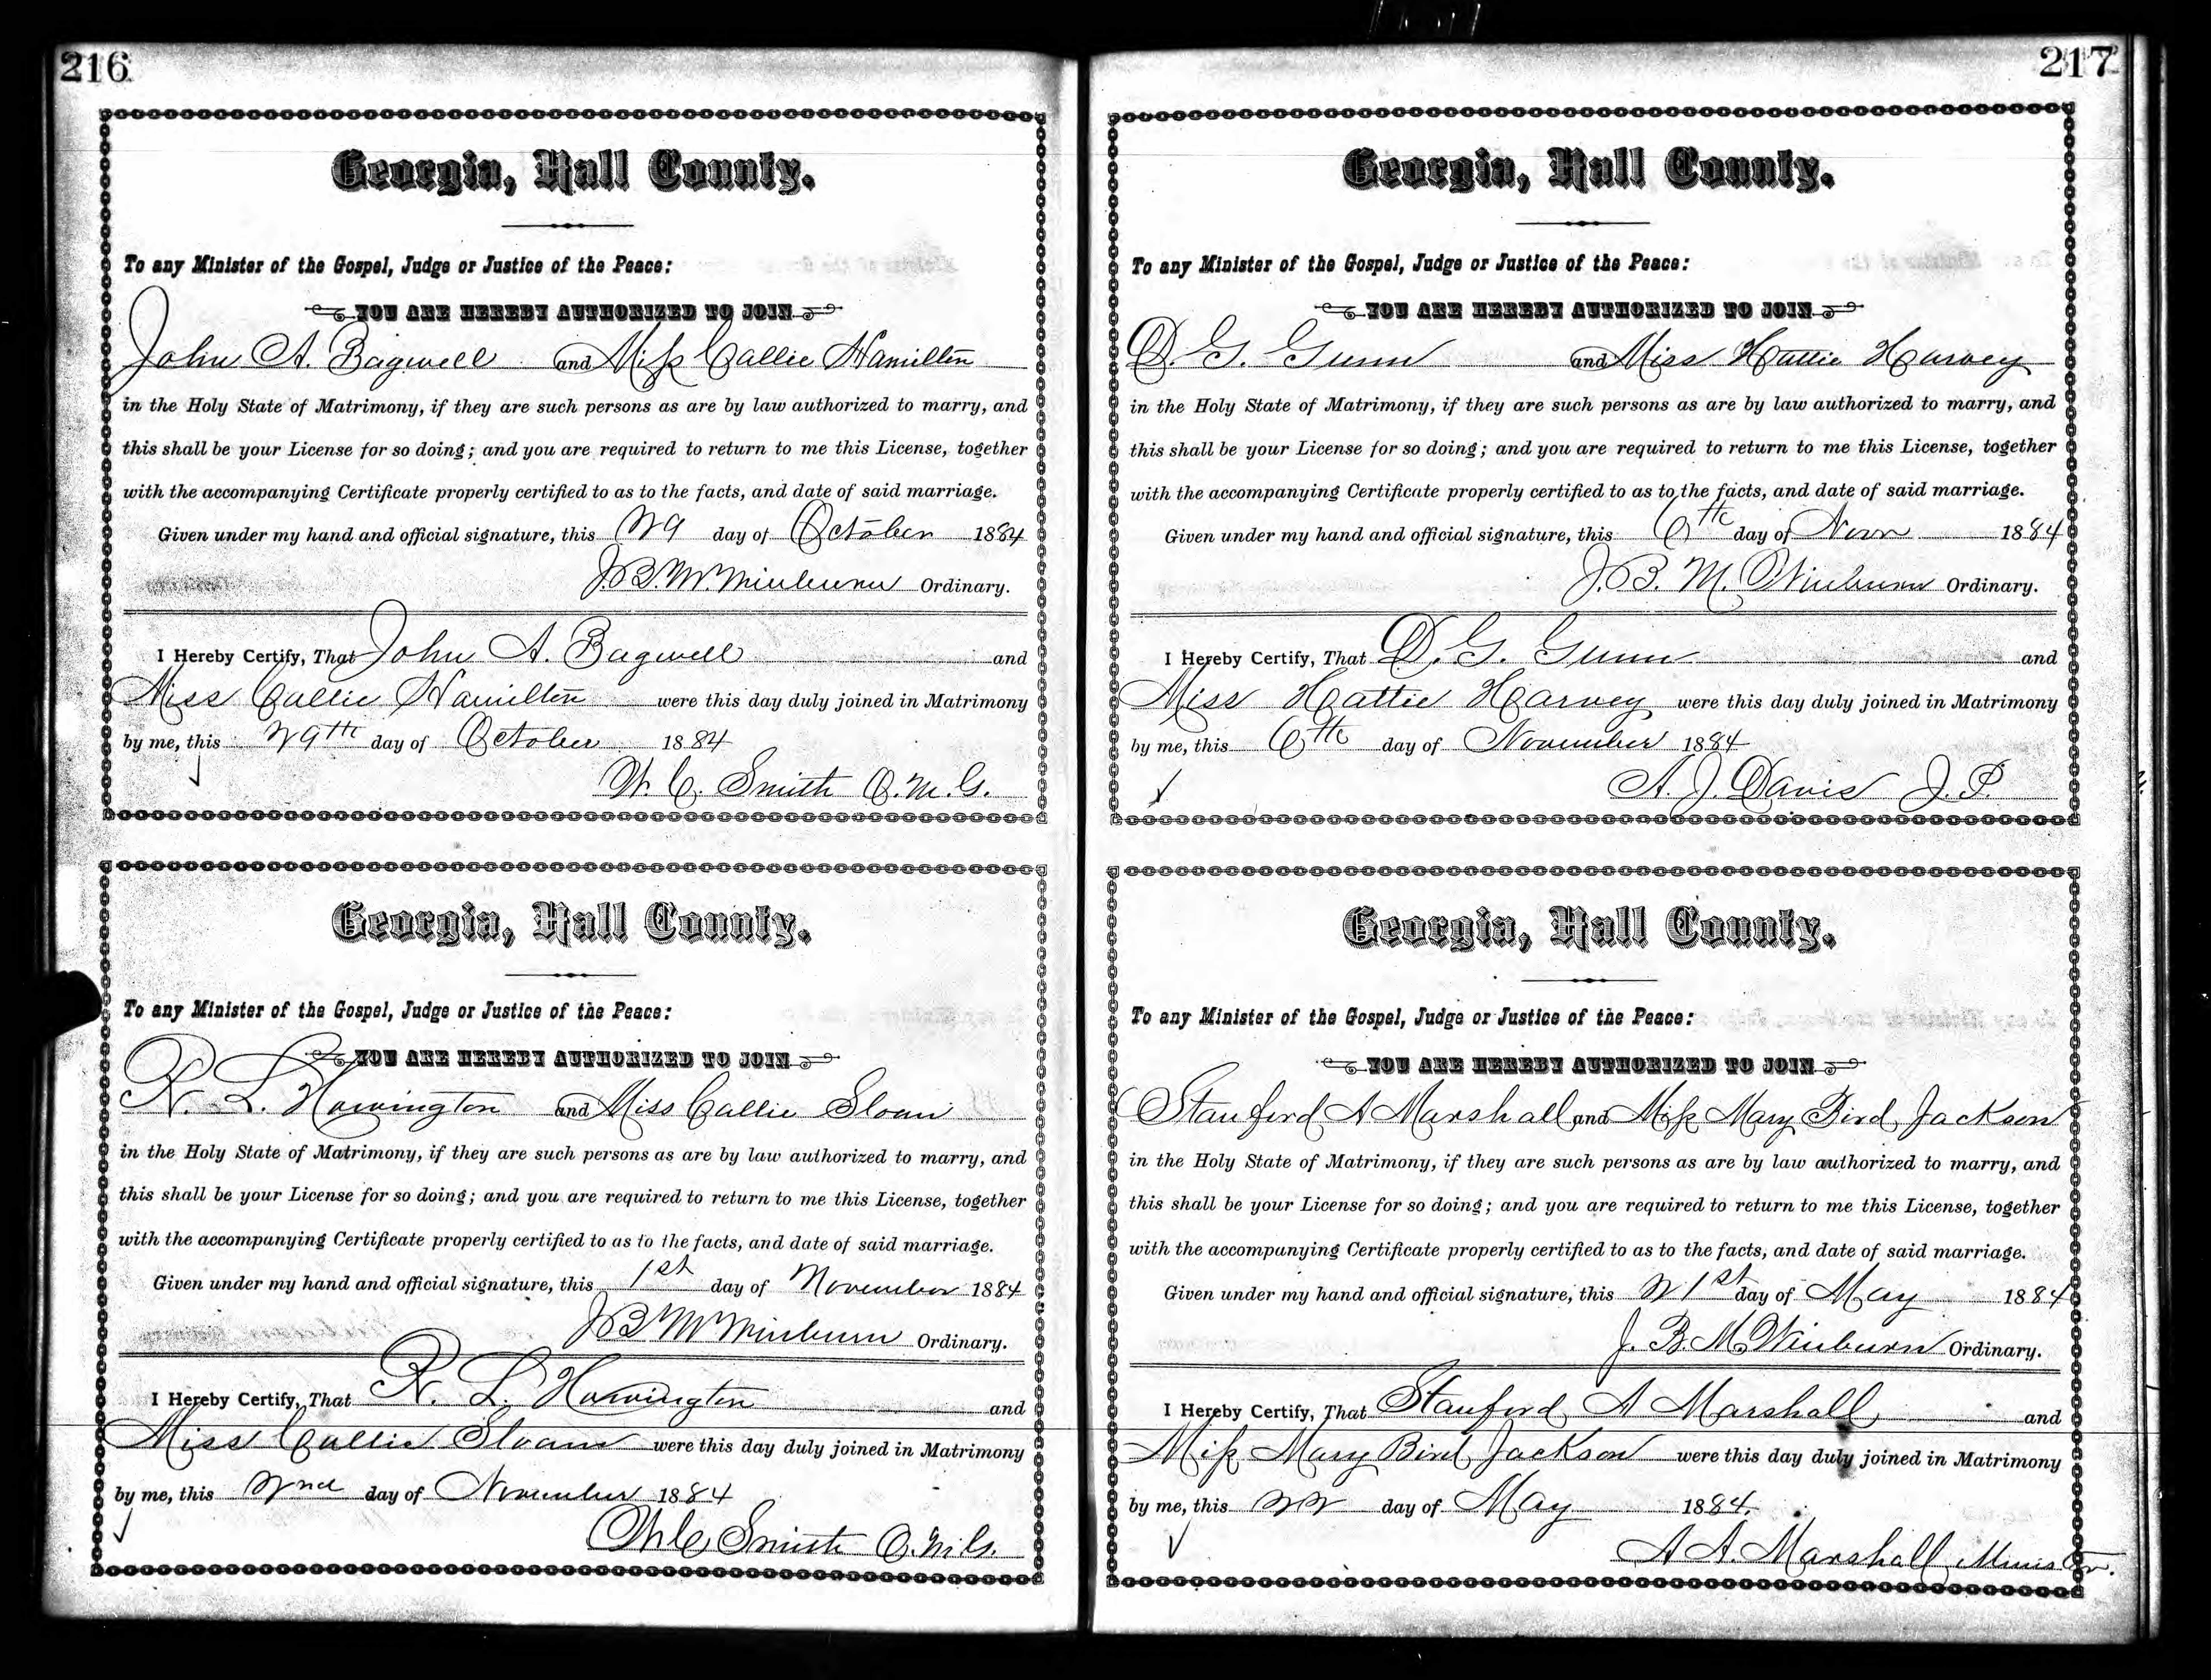 216
Georgia, Hall County.
To any Minister of the Gospel, Judge or Justice of the Peace:
YOU ARE HEREBY AUTHORIZED TO JOIN
John A. Bagwell and Miss Callie Hamilton
in the Holy State of Matrimony, if they are such persons as are by law authorized to marry, and
this shall be your License for so doing; and you are required to return to me this License, together
with the accompanying Certificate properly certified to as to the facts, and date of said marriage.
Given under my hand and official signature, this 29 day of October 1884
J.B.M. Winburn Ordinary.
I Hereby Certify, That John A. Bagwell and
Miss Callie Hamilton were this day duly joined in Matrimony
by me, this 29th day of October 1884
W. C. Smith O.M.G.
Georgia, Hall County.
To any Minister of the Gospel, Judge or Justice of the Peace:
YOU ARE HEREBY AUTHORIZED TO JOIN
R. L. Howington and Miss Callie Sloan
in the Holy State of Matrimony, if they are such persons as are by law authorized to marry, and
this shall be your License for so doing; and you are required to return to me this License, together
with the accompanying Certificate properly certified to as to the facts, and date of said marriage.
Given under my hand and official signature, this 1st day of November 1884
J B M Winburn Ordinary.
I Hereby Certify, That R. L. Howington and
Miss Callie Sloan were this day duly joined in Matrimony
by me, this 2nd day of November 1884
W C Smith O.M.G.
217
Georgia, Hall County.
To any Minister of the Gospel, Judge or Justice of the Peace:
YOU ARE HEREBY AUTHORIZED TO JOIN
D. G. Gunn and Miss Hattie Harvey
in the Holy State of Matrimony, if they are such persons as are by law authorized to marry, and
this shall be your License for so doing; and you are required to return to me this License, together
with the accompanying Certificate properly certified to as to the facts, and date of said marriage.
Given under my hand and official signature, this 6th day of Novr 1884
J. B. M. Winburn Ordinary.
I Hereby Certify, That D. G. Gunn and
Miss Hattie Harvey were this day duly joined in Matrimony
by me, this 6th day of November 1884
A. J. Davis J. P.
Georgia, Hall County.
To any Minister of the Gospel, Judge or Justice of the Peace:
YOU ARE HEREBY AUTHORIZED TO JOIN
Stanford A Marshall and Miss Mary Bird Jackson
in the Holy State of Matrimony, if they are such persons as are by law authorized to marry, and
this shall be your License for so doing; and you are required to return to me this License, together
with the accompanying Certificate properly certified to as to the facts, and date of said marriage.
Given under my hand and official signature, this 21st day of May 1884
J. B. M. Winburn Ordinary.
I Hereby Certify, That Stanford A Marshall and
Miss Mary Bird Jackson were this day duly joined in Matrimony
by me, this 22 day of May 1884.
A A. Marshall Minister.